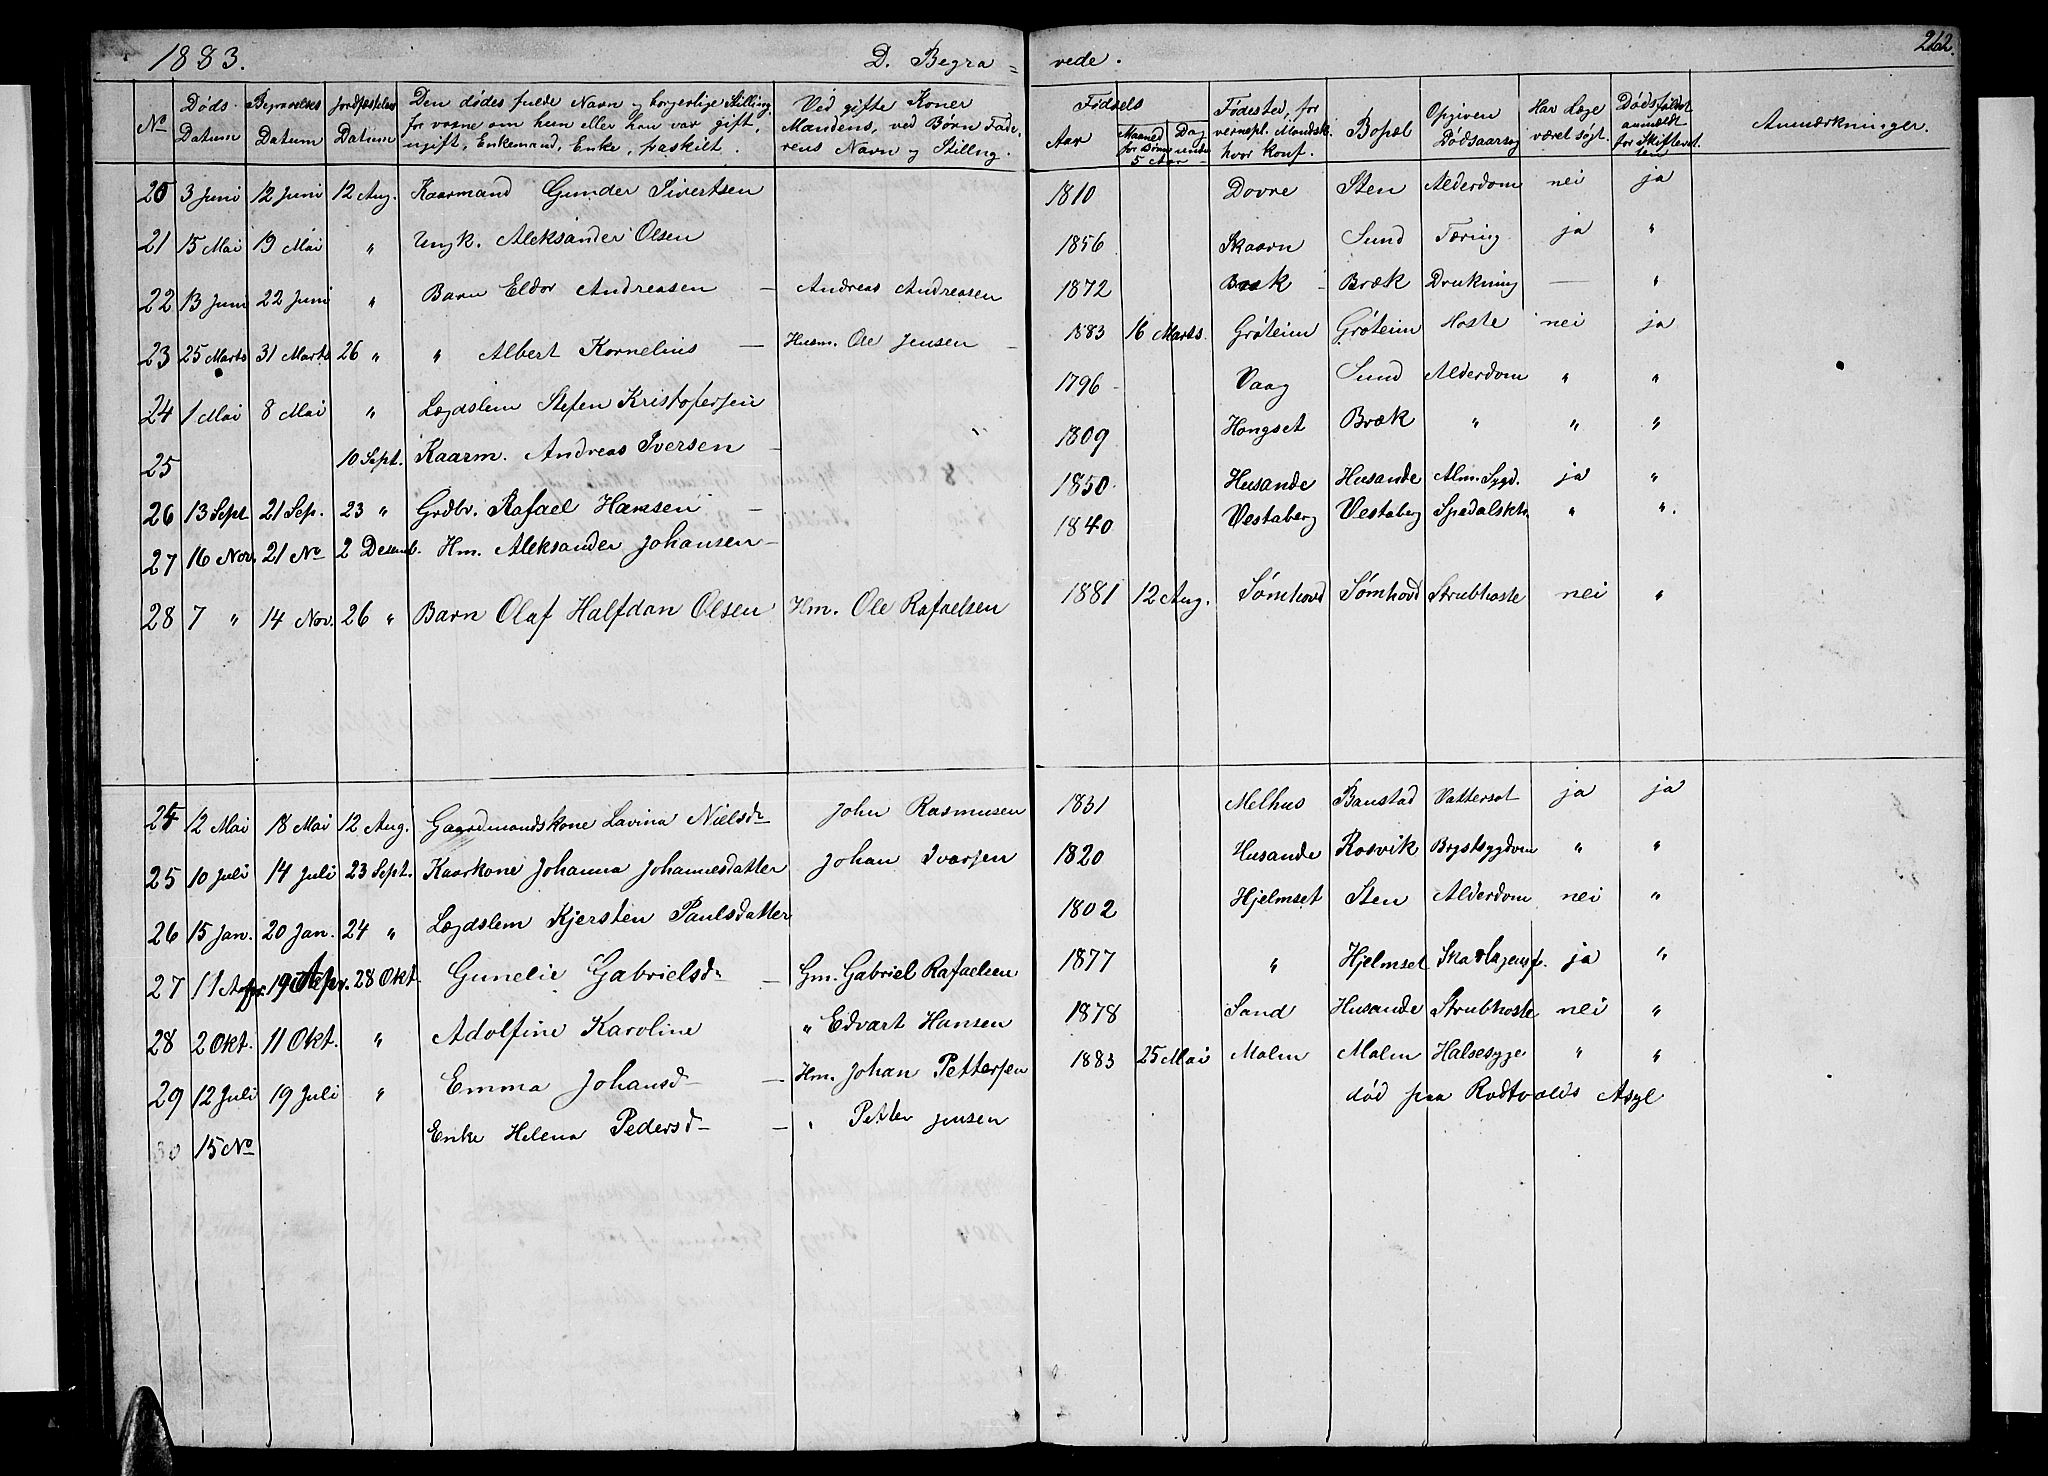 1883. D. Begra = vede. 262.
No Døds Datum Begravelses Datum Jordfæstelses Datum Den dødes fulde Navn og borgerlige Stilling, for voxne om hun eller han var gift, ugift, Enkemand, Enke, fraskilt. Ved gifte Koner Mandens, ved Børn Faderens Navn og Stilling. Fødsels Aar Maaned Dag for Børn under 5 Aar Fødested, for vernepl. Mandsk. hvor konf. Bopæl Opgiven Dødsaarsag Har Læge været søgt. Dødsfaldet anmeldt for Skifteretten Anmærkninger.
20 3 Juni 12 Juni 12 Aug. Kaarmand Gunder Sivertsen 1810 Dovre Sten Alderdom nei ja
21 15 Mai 19 Mai " Ungk. Aleksander Olsen 1856 Skaarn Sund Tæring ja "
22 13 Juni 22 Juni " Barn Eldor Andreasen — Andreas Andreasen 1872 Bræk - Bræk Drukning — "
23 25 Marts 31 Marts 26 " " Albert Kornelius — Husm. Ole Jensen — 1883 16 Marts. Gröteim Gröteim Hoste nei ja
24 1 Mai 8 Mai " Lægdslem Stefen Kristofersen 1796 Vaag Sund Alderdom " "
25 10 Sept. Kaarm. Andreas Iversen — 1809 Hongset Bræk " " "
26 13 Sept 21 Sep. 23 " Grdbr. Rafael Hansen — 1850 Husande Husande Alm. Sygd. ja "
27 16 Nov. 21 No 2 Desemb. Hm. Aleksander Johansen — 1840 Vestaberg Vestaberg Spedalskh. " ".
28 7 " 14 Nov. 26 " Barn Olaf Halfdan Olsen Hm. Ole Rafaelsen 1881 12 Aug. Sömhovd Sömhovd Strubhoste nei "
24 12 Mai 18 Mai 12 Aug. Gaardmandskone Lavina Nielsd John Rasmusen 1831 Melhus Banstad Vattersot ja ja
25 10 Juli 14 Juli 23 Sept. Kaarkone Johanna Johannesdatter Johan Ivarsen 1820 Husande Rosvik Brystsygdom " "
26 15 Jan. 20 Jan. 24 " Lægdslem Kjersten Paulsdatter 1802 Hjelmset Sten Alderdom nei "
27 11 Apr. 19 Apr. 28 Okt. Gunelie Gabrielsd — Gm. Gabriel Rafaelsen 1877 " Hjelmset ja "
28 2 Okt. 11 Okt. " Adolfine Karoline " Edvart Hansen 1878 Sand Husande Strubhoste nei "
29 12 Juli 19 Juli " Emma Johansd — Hm. Johan Pettersen 1883 25 Mai Malm Malm Halsesyge " "
30 15 No Enke Helena Pedersd — Petter Jensen død paa Rodtvoldis Asyl